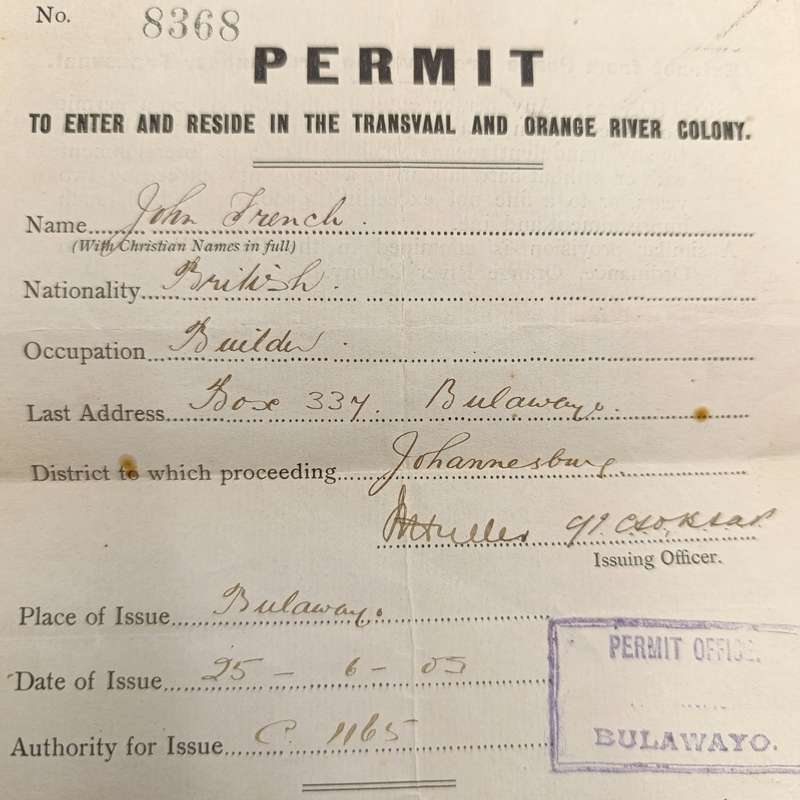 No. 8368
PERMIT
TO ENTER AND RESIDE IN THE TRANSVAAL AND ORANGE RIVER COLONY.
Name John French.
(With Christian Names in full)
Nationality British.
Occupation Builder.
Last Address Box 337. Bulawayo.
District to which proceeding Johannesburg.
Issuing Officer.
Place of Issue Bulawayo.
Date of Issue 25 - 6 - 03
Authority for Issue C. 1165
PERMIT OFFICE.
BULAWAYO.